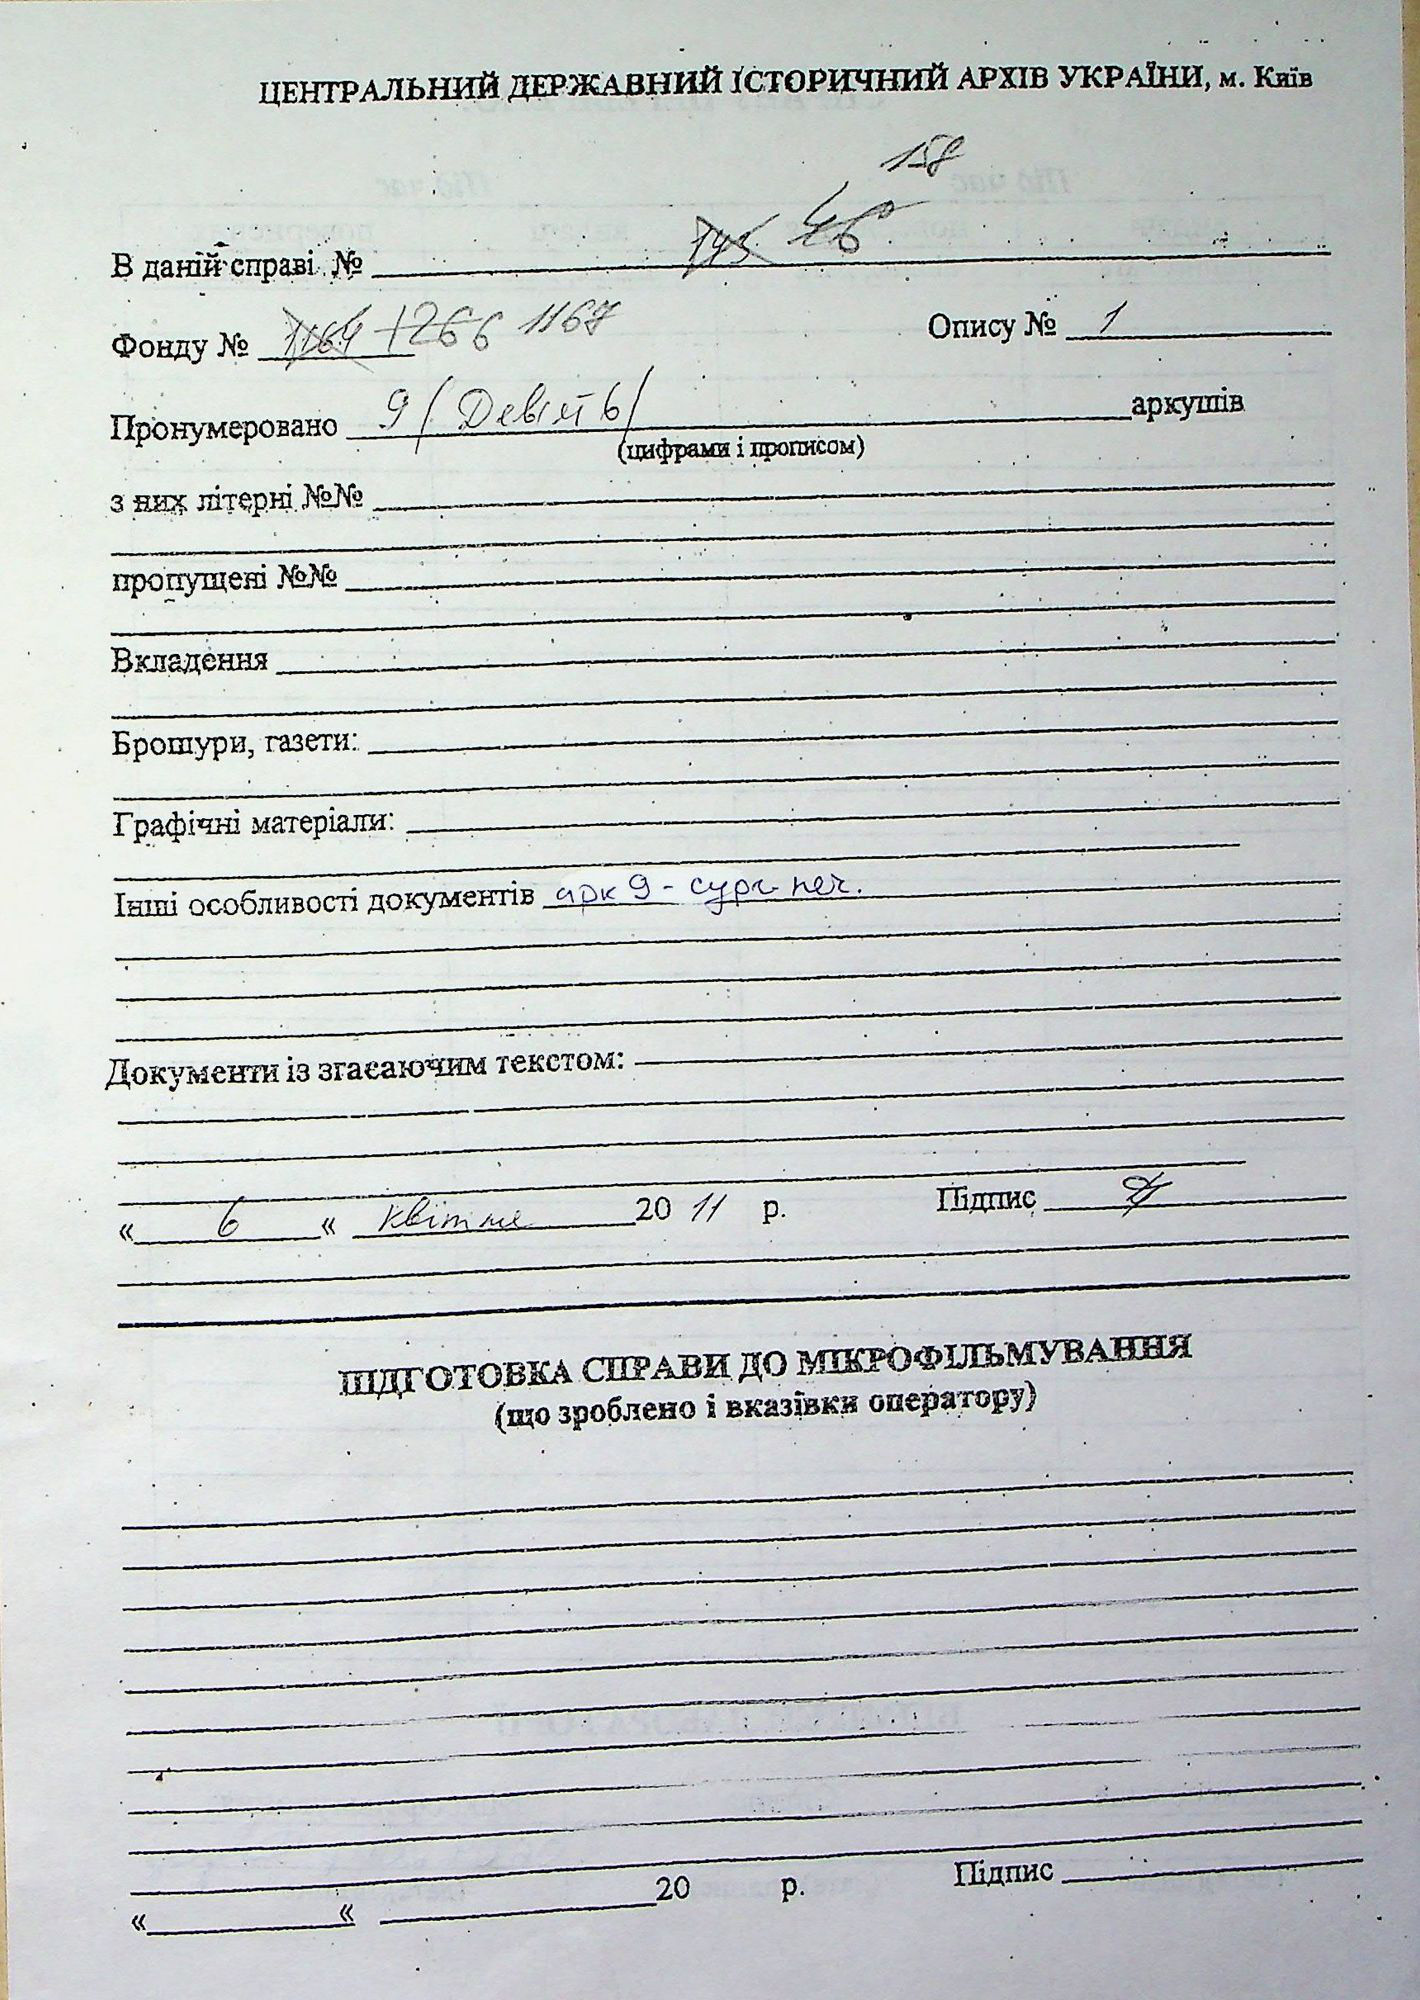 ЦЕНТРАЛЬНИЙ ДЕРЖАВНИЙ ІСТОРИЧНИЙ АРХІВ УКРАЇНИ, м. Київ
158
В даній справі № 145 46
Фонду № 1164 1266 1167 Опису № 1
Пронумеровано 9 (Девять) аркушів
(цифрами і прописом)
з них літерні №№
пропущені №№
Вкладення
Брошури, газети:
Графічні матеріали:
Інші особливості документів арк 9 - сург. печ.
Документи із згасаючим текстом:
« 6 « квітня 20 11 р. Підпис
ПІДГОТОВКА СПРАВИ ДО МІКРОФІЛЬМУВАННЯ
(що зроблено і вказівки оператору)
« « 20 р. Підпис